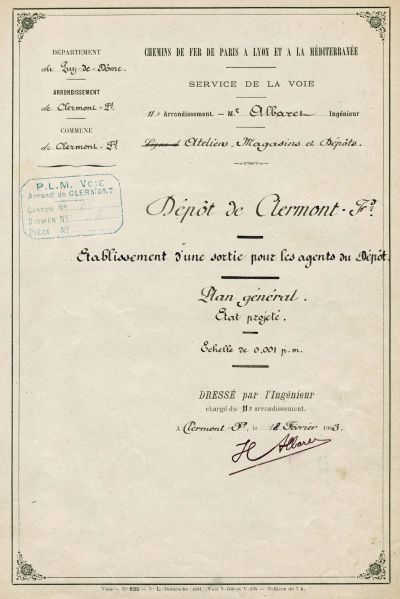 DÉPARTEMENT
du Puy-de-Dôme
ARRONDISSEMENT
de Clermont-Fd.
COMMUNE
de Clermont-Fd.
CHEMINS DE FER DE PARIS A LYON ET A LA MÉDITERRANÉE
SERVICE DE LA VOIE
11e Arrondissement. — Mr. Albaret Ingénieur
Ligne d Ateliers, Magasins et Dépôts.
P.L.M. VOIE
Arrondt de CLERMONT
CANTON No
DOSSIER No
PIÈCE No
Dépôt de Clermont-Fd.
Etablissement d'une sortie pour les agents du Dépôt.
Plan général.
Etat projeté.
Echelle de 0,001 p.m.
DRESSÉ par l'Ingénieur
chargé du 11e arrondissement.
A Clermont-Fd, le 18 Février 1903.
H Albaret
Voie — No 825 — Ve L. Delaroche (1901). Voir V-100 et V-295 — Tellière de 7 k.